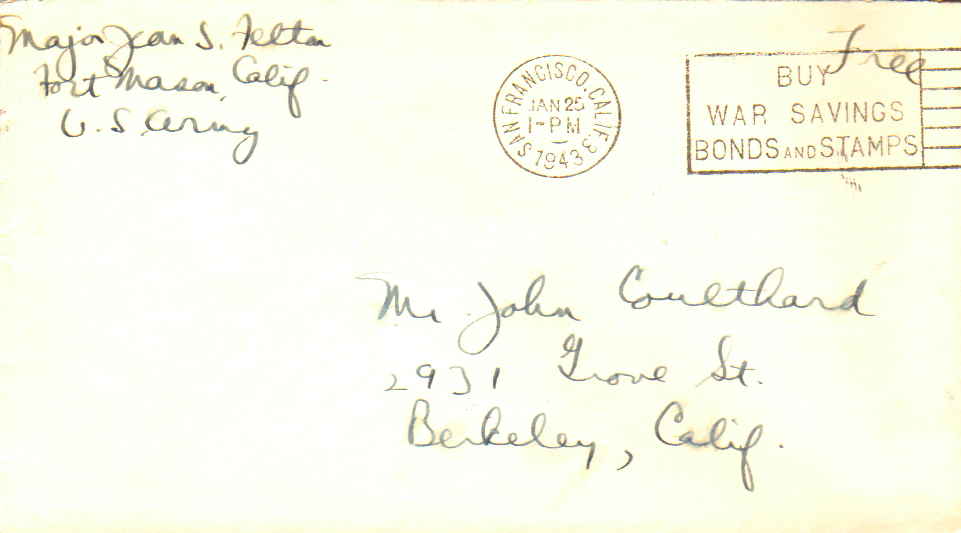 Major Jean S. Felton
Fort Mason, Calif.
U.S. Army
SAN FRANCISCO, CALIF. 3
JAN 25
1-PM
1943
Free
BUY
WAR SAVINGS
BONDS AND STAMPS
Mr John Coulthard
2931 Grove St.
Berkeley, Calif.